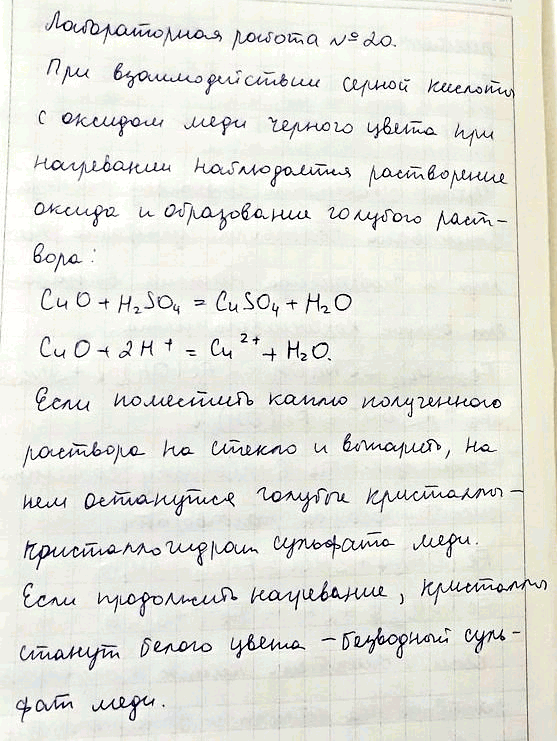 Лабораторная работа №20.
При взаимодействии серной кислоты
с оксидом меди черного цвета при
нагревании наблюдается растворение
оксида и образование голубого раст-
вора:
CuO + H₂SO₄ = CuSO₄ + H₂O
CuO + 2H⁺ = Cu²⁺ + H₂O.
Если поместить каплю полученного
раствора на стекло и выпарить, на
нем останутся голубые кристаллы -
кристаллогидрат сульфата меди.
Если продолжить нагревание, кристаллы
станут белого цвета - безводный суль-
фат меди.